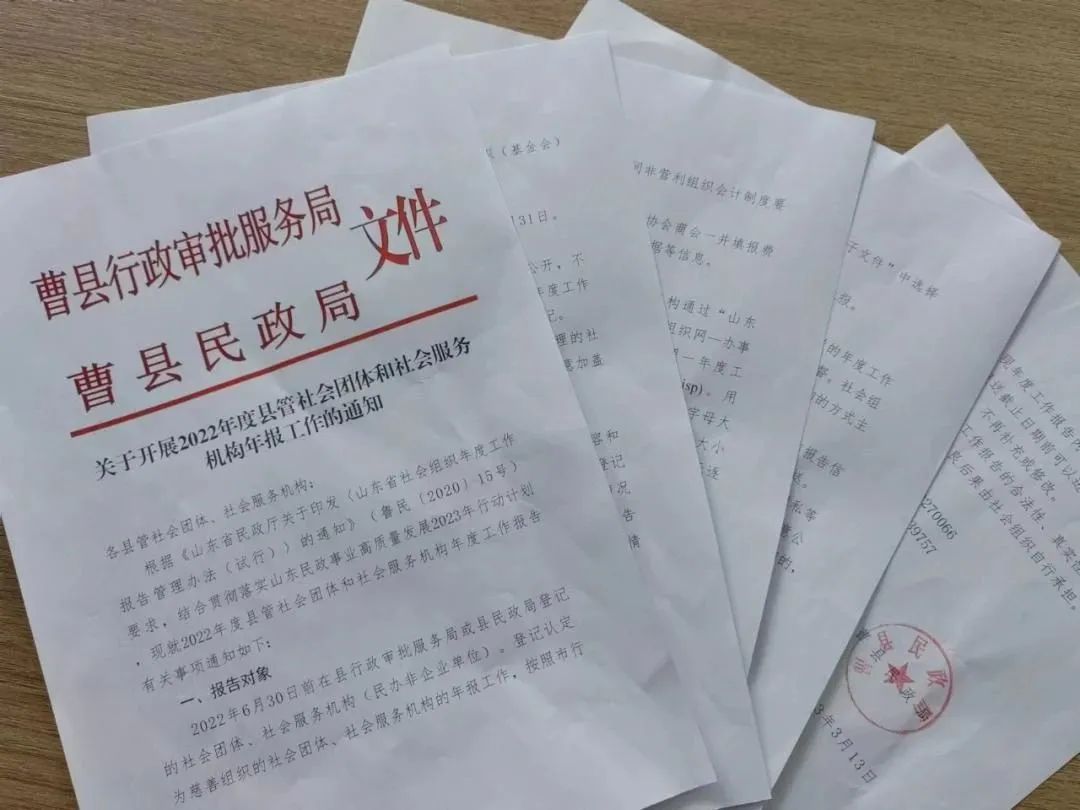 曹县行政审批服务局
文件
曹县民政局
关于开展2022年度县管社会团体和社会服务
机构年报工作的通知
各县管社会团体、社会服务机构：
根据《山东省民政厅关于印发〈山东省社会组织年度工作
报告管理办法（试行）〉的通知》（鲁民〔2020〕15号）
要求，结合贯彻落实山东民政事业高质量发展2023年行动计划
，现就2022年度县管社会团体和社会服务机构年度工作报告
有关事项通知如下：
一、报告对象
2022年6月30日前在县行政审批服务局或县民政局登记
的社会团体、社会服务机构（民办非企业单位）。登记认定
为慈善组织的社会团体、社会服务机构的年报工作，按照市行
（基金会）
31日。
公开，不
年度工作
记。
理的社
加盖
容和
登记
情况
告
情
间非营利组织会计制度要
协会商会一并填报费
据等信息。
构通过“山东
组织网—办事
一年度工
isp）。用
字母大
大小
逐
子文件”中选择
报。
的年度工作
督。社会组
的方式主
报告信
私等
公
的，
现年度工作报告内
送截止日期前可以
，不再补充或修改。
工作报告的合法性、真实性
后果由社会组织自行承担。
270066
39757
县民政
3年3月13日